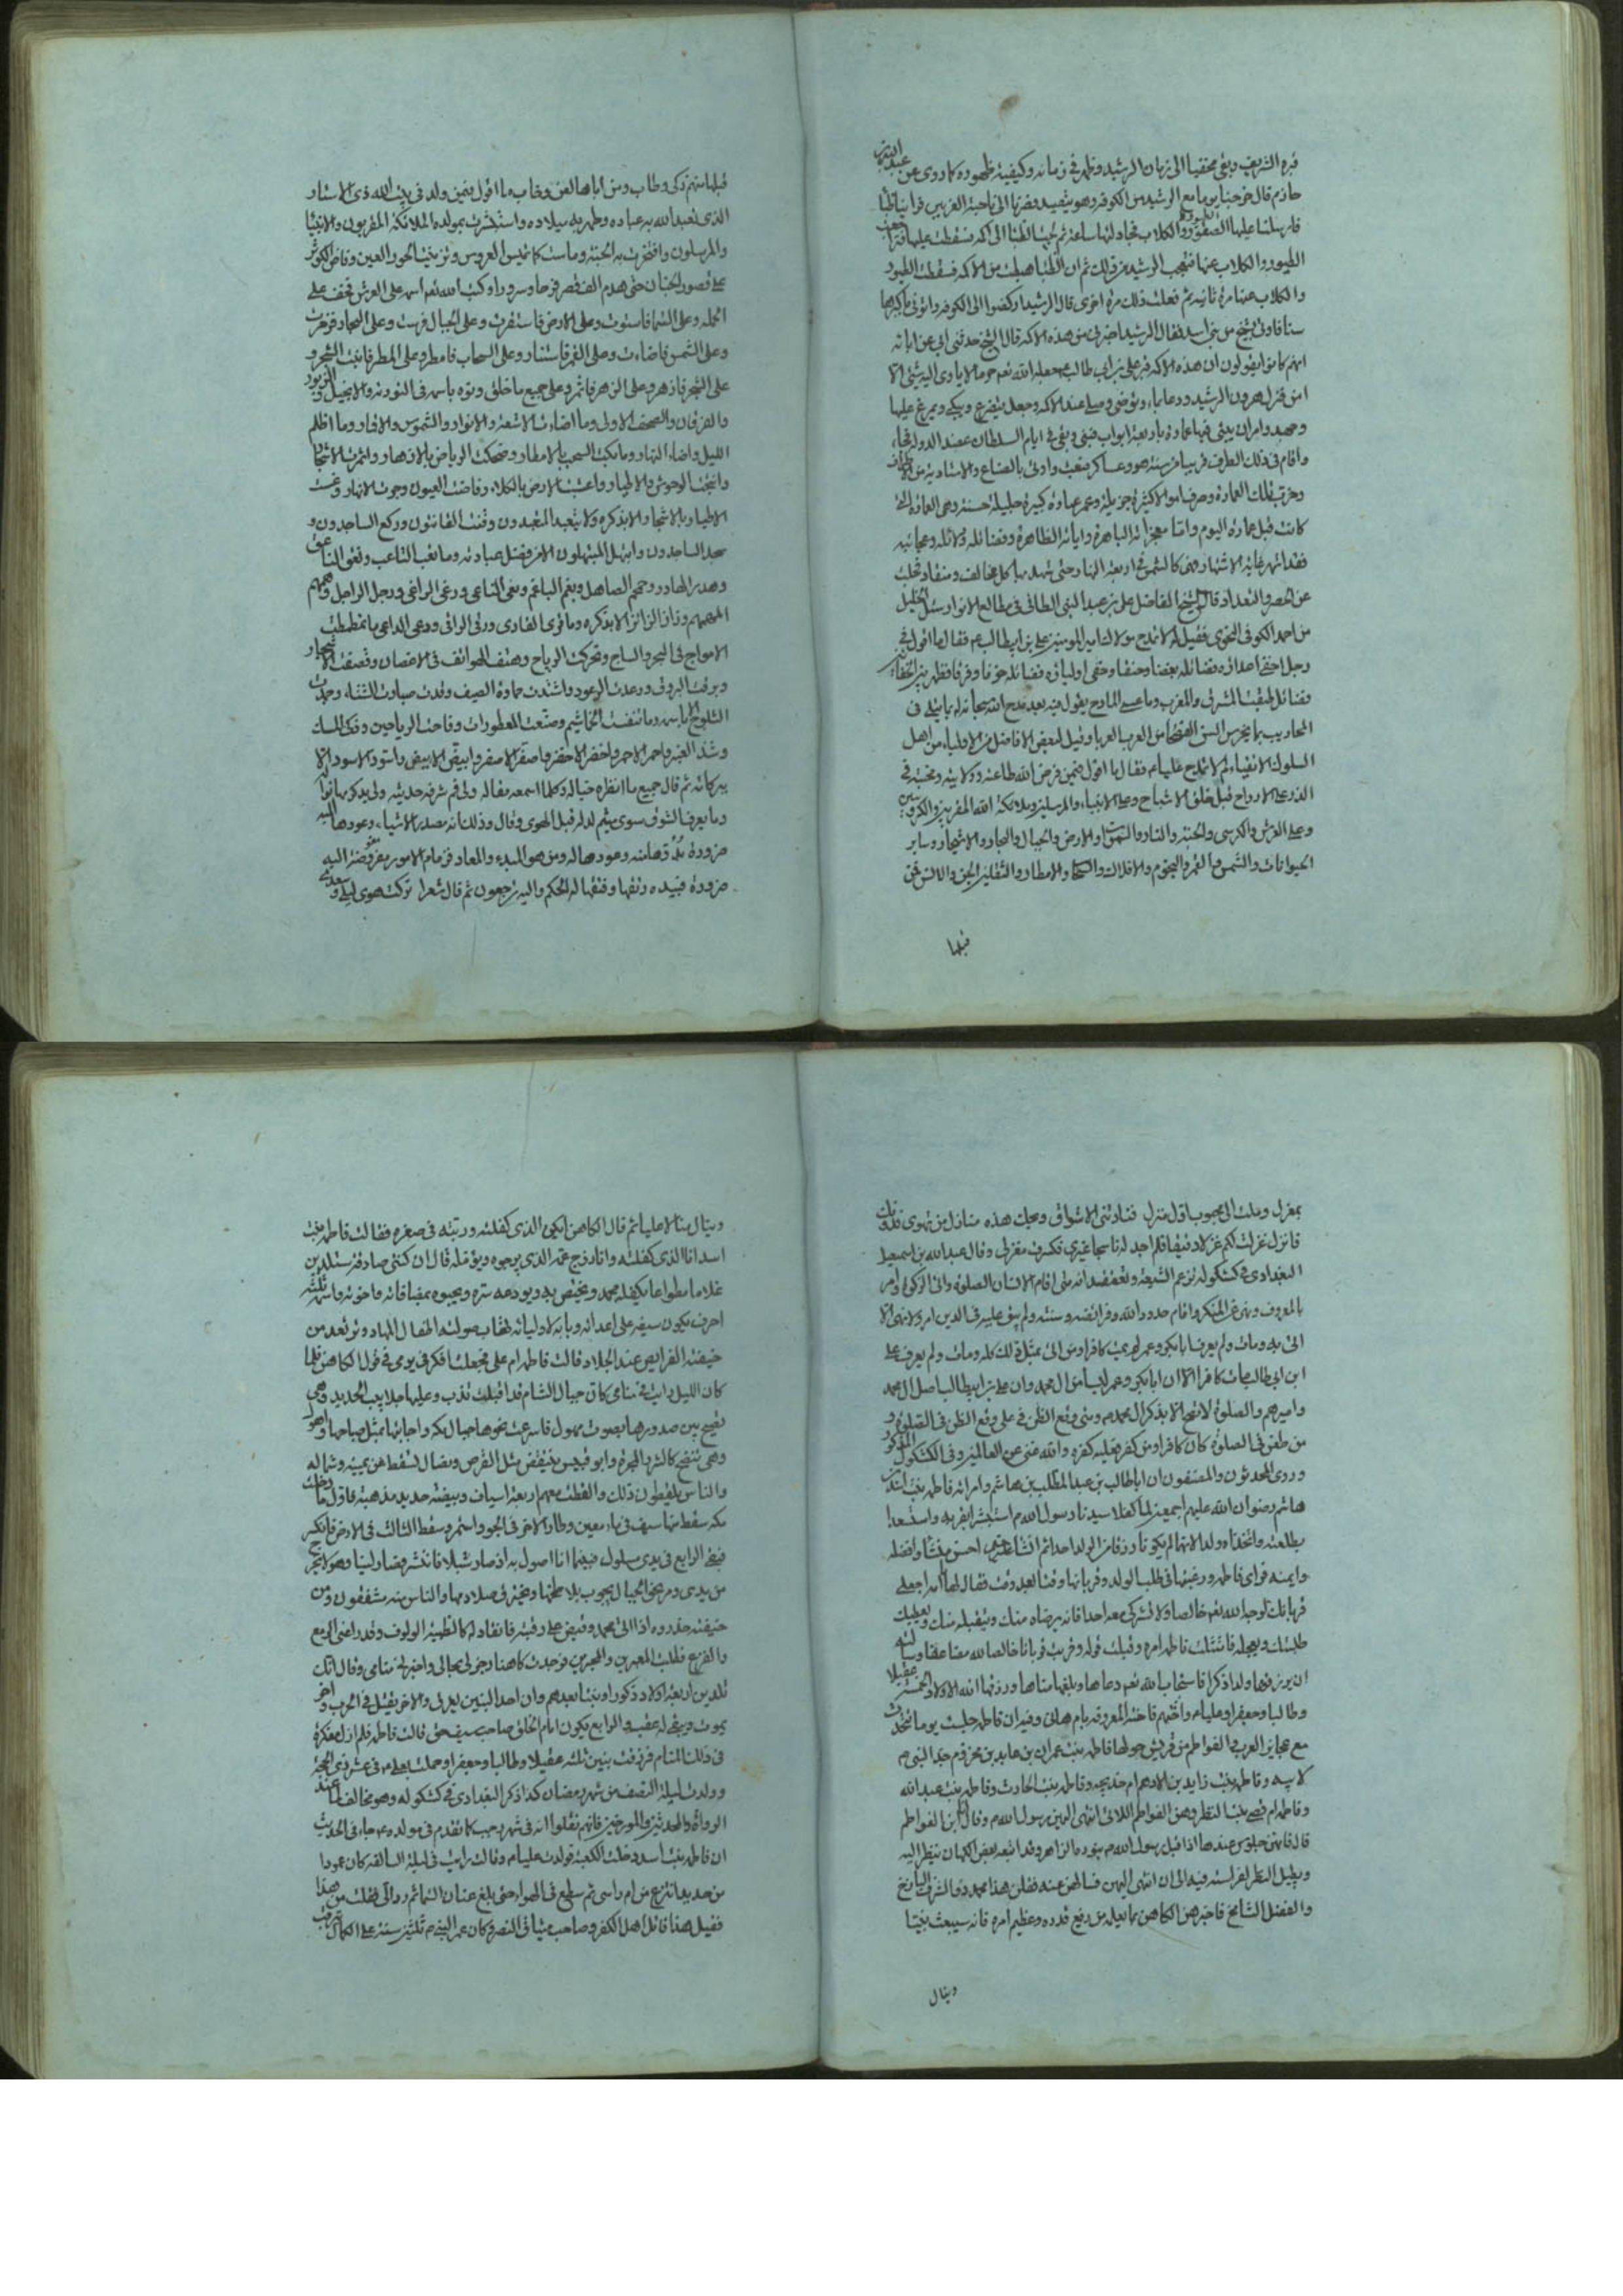 قبره الشريف وبقى مختفيا الى زمان الرشيد وظهر فى زمانه وكيفية ظهوره كما روى عن عبد الله بن
حازم قال خرجنا يوما مع الرشيد من الكوفه وهو يتصيد فصرنا الى ناحية الغريين فراينا ظباء
فارسلنا عليها الصقور والكلاب فجاولتها ساعة ثم لجات الظباء الى اكمه فسقطت عليها فتراجعت
الطيور والكلاب عنها فتعجب الرشيد من ذلك ثم ان الظبا هبطت من الاكمه فسقطت الطيور
والكلاب عنها مرة ثانيه ثم فعلت ذلك مرة اخرى قال الرشيد اركضوا الى الكوفه واتونى باكبرها
سنا فاوتى بشيخ من بنى اسد فقال الرشيد اخبرنى عن هذه الاكمه قال الشيخ حدثنى ابى عن ابائه
انهم كانوا يقولون ان هذه الاكمه قبر على بن ابى طالب جعله الله تعم حرما لا ياوى اليه شئ الا
امن فنزل هرون الرشيد ودعا بماء وتوضى وصلى عند الاكمه وجعل يتضرع ويبكى ويمرغ عليها
وجهه وامر ان يبنى فيها عمارة باربعة ابواب فبنى وبقى فى ايام السلطان عضد الدوله فجاء
واقام فى ذلك الطرف قريبا من سنه هو وعساكره فبعث واوتى بالصناع والاستاديه من الاطراف
وخرب تلك العمارة وصرف اموالا كثيرة جزيلة وعمر عمارة كبيرة جليلة حسنة وهى العمارة التى
كانت قبل عمارة اليوم واما معجزاته الباهرة واياته الظاهرة وفضائله ودلائله وعجائبه
فقد اشتهر غاية الاشتهار فهى كالشمس فى اربعة النهار حتى شهد بها كل مخالف ومنقاد وتجلت
عن الحصر والتعداد قال الشيخ الفاضل على بن عبد النبى الطائى فى مطالع الانوار سئل الخليل
بن احمد الكوفى النحوى فقيل له لم لا تمدح مولانا امير المومنين على بن ابيطالب عم فقال ما اقول فى
رجل اخفى اعداؤه فضائله بغضا وحنقا وخفى اولياؤه فضائله خوفا وفرقا فظهر بين الخفائين
فضائل طبقت المشرق والمغرب وما عسى المادح يقول فيه بعد مدح الله سبحانه له بما يتلى فى
المحاريب بما يخرس السن الفصحا من العرب العربا وقيل لبعض الافاضل من الاولياء من اهل
السلوك الاتقياء لم لا تمدح عليا م فقال ما اقول فيمن فرض الله طاعته وولايته ومحبته فى
الذر على الارواح قبل خلق الاشباح وعلى الانبياء والمرسلين وملائكة الله المقربين والكروبيين
وعلى العرش والكرسى والجنة والنار والسموات والارض والجبال والبحار والاشجار وساير
الحيوانات والشمس والقمر والنجوم والافلاك والسحاب والامطار والثقلين الجن والانس فمن
قبلها
قبلها منهم زكى وطاب ومن اباها لعن وخاب ما اقول فيمن ولد فى بيت الله ذى الاستار
الذى تعبد الله به عباده وطهر به بيلاده واستبشرت بمولده الملائكة المقربون والانبيا
والمرسلون وافتخرت به الجنة وماست كما تميس العروس وتزينت الحور العين وفاض الكوثر
على قصور الجنان حتى هدم الف قصر فرحا وسرورا وكتب الله تعم اسمه على العرش فخف على
الحمله وعلى السما فاستوت وعلى الارض فاستقرت وعلى الجبال فرست وعلى البحار فزخرت
وعلى الشمس فاضاءت وعلى القمر فاستنار وعلى السحاب فامطر وعلى المطر فانبت الشجر و
على الشجر فازهر وعلى الزهر فاثمر وعلى جميع ما خلق ونوه باسمه فى التوريه والانجيل والزبور
والفرقان والصحف الاولى وما اضاءت الاشعة والانوار والشموس والاقمار وما اظلم
الليل واضاء النهار وما بكت السحب بالامطار وضحكت الرياض بالازهار واثمرت الاشجار
وانتجت الوحوش والاطيار واعشبت الارض بالكلاء وفاضت العيون وجرت الانهار وغنت
الاطيار بالاشجار الا بذكره ولا يتعبد المتعبدون وقنت القانتون وركع الساجدون و
سجد الساجدون وابتهل المبتهلون الا من فضل عبادته وما نعب الناعب ونعق الناعق
وهدر الهادر وحمحم الصاهل وبغم الباغم ونعى الناعى ورغى الراغى ورجل الراجل وهمهم
المهمهم وزار الزائر الا بذكره وما قرى القارى ورقى الراقى ودعى الداعى ما تغطمطت
الامواج فى البحر والساج وتحركت الرياح وهتف الهواتف فى الاغصان وتصفقت الاشجار و
وبرقت البروق ورعدت الرعود واشتدت حمارة الصيف وقدت صبارت الشتاء وجمدت
الثلوج الا باسمه وما تنفست الخاشيم وصنعت العطورات وفاحت الرياحين وذكى المسك
وشذ العنبر واحمر الاحمر واخضر الاخضر واصفر الاصفر وابيض الابيض واسود الاسود الا
ببركاته ثم قال جميع ما انظره خياله وكلما اسمعه مقاله ولى فم شرفه حديثه ولى بدكره انوار
وما يعرف الشوق سوى متيم لدله قبل الهوى وقال وذلك انه مصدر الاشياء وعودها اليه
ضرورة بدؤها منه وعودها له ومن هو المبدء والمعاد فزمام الامور مفوضة اليه
ضرورة فبيده رتقها وفتقها له الحكم واليه ترجعون ثم قال شعرا تركت هوى ليلى وسعدى
بمعزل وملت الى محبوب اول منزل فنادتنى الاشواق ويحك هذه منازل من تهوى فدونك
فانزل غزلت لكم غزلا دقيقا فلم اجد له ناسجا غيرى فكسرت مغزلى وقال عبد الله بن اسمعيل
البغدادى فى كشكوله تزعم الشيعة وتعتقد انه متى اقام الانسان الصلوة واتى الزكوة وامر
بالمعروف ونهى عن المنكر واقام حدود الله وفرائضه وسننه ولم يبق عليه فى الدين امر ولا نهى الا
اتى به ومات ولم يعرف ابا بكر وعمر لم يمت كافرا ومن اتى بمثل ذلك كله ومات ولم يعرف على
ابن ابى طالب مات كافرا الا ان ابا بكر وعمر ليسا من ال محمد وان على بن ابيطالب اصل ال محمد
واميرهم والصلوة لا تصح الا بذكر ال محمد م ومتى وقع الظن فى على وقع الظن فى الصلوة و
من طعن فى الصلوة كان كافرا ومن كفر فعليه كفره والله غنى عن العالمين وفى الكشكول المذكور
وروى المحدثون والمصنفون ان ابا طالب بن عبد المطلب بن هاشم وامراته فاطمه بنت اسد بن
هاشم رضوان الله عليهم اجمعين لما كفلا سيدنا رسول الله م استبشرا بقربه واستسعدا
بطلعته واتخذاه ولدا لانهما لم يكونا رزقا من الولد احدا ثم انشا عليه م احسن منشا وافضله
وايمنه فراى فاطمه ورغبتها فى طلب الولد وقربانها وقتا بعد وقت فقال لها يا امه اجعلى
قربانك لوجه الله تعم خالصا ولا تشركى معه احدا فانه يرضاه منك ويتقبله منك ويعطيك
طلبتك ويعجله فامتثلت فاطمه امره وقبلت قوله وقربت قربانا خالصا لله مضاعفا وسالته
ان يرزقها ولدا ذكرا فاستجاب الله تعم دعاها وبلغها مناها ورزقها الله الاولاد الخمسة عقيلا
وطالبا وجعفرا وعليا م واختهم فاخته المعروفه بام هانى وقيل ان فاطمه جلست يوما تتحدث
مع عجايز العرب الفواطم من قريش حولها فاطمه بنت عمران بن عايد بن مخزوم جدة النبى م
لابيه وفاطمه بنت زايد بن الاصم ام خديجه وفاطمه بنت الحارث وفاطمه بنت عبد الله
وفاطمه ام قصى بنت النظر وهن الفواطم اللاتى انتهى اليهن رسول الله م وقال انا ابن الفواطم
قال فانهن جلوس عندها اذ اقبل رسول الله م بنوره الزاهر وقد اتبعه بعض الكهان ينظر اليه
ويطيل النظر لفراسته فيه الى ان انتهى اليهن فسالهن عنه فقلن هذا محمد ذو الشرف الباذخ
والفضل الشامخ فاخبرهن الكاهن بما يعلم من رفيع قدره وعظيم امره فانه سيبعث نبيا
وينال
وينال منالا عليا ثم قال الكاهن ايكن الذى كفلته وربته فى صغره فقالت فاطمه بنت
اسد انا الذى كفلته وانا زوج عمه الذى يرجوه ويؤمله قال ان كنتى صادقه ستلدين
غلاما مطواعا يكفله محمد ويختص به ويودعه سره ويحبوه بمصافاته واخوته واسمه ثلثة
احرف يكون سيفه على اعدائه وبابه لاوليائه تهاب صولته الاطفال المهاد وترتعد من
خيفته الفرايص عند الجلاد قالت فاطمه ام على فجعلت افكر فى يومى فى قول الكاهن فلما
كان الليل رايت فى منامى كان جبال الشام قد اقبلت تذب وعليها جلابيب الحديد وهى
تصيح من صدورها بصوت مهول فاسرعت نحوها جبال مكه واجابتها بمثل صياحها واهول
وهى تنتضح كالشرد الحمرة وابو قبيس ينتفض مثل الفرس ونصال تسقط عن يمينه وشماله
والناس يلتقطون ذلك والقطت معهم اربعة اسياف وبيضة حديد مذهبة فاول ما دخلت
مكه سقط منها سيف فى ماء معين وطار الاخر فى الجو واستمر وسقط الثالث فى الارض فانكسر
فبقى الرابع فى يدى مسلول فبينما انا اصول به اذ صار شبلا فانتشر فصار ليثا وهو لا يخرج
من يدى ومر نحو الجبال يجوب بلاطحها ويخترق صلادمها والناس منه مشفقون ومن
خيفته حذروه اذا اتى محمد وقبض على رقبته فانقاد له كالظبية الولوف وقد راعنى الروع
والفزع فطلبت المعبرين والمخبرين فوجدت كاهنا زجر لى بحالى واخبرنى منامى وقال انك
تلدين اربعة اولاد ذكور وبنتا بعدهم وان احد البنين يغرق والاخر يقتل فى الحرب واخر
يموت ويبقى له عقب والرابع يكون امام الخلق صاحب سيف حق قالت فاطمه فلم ازل مفكرة
فى ذلك المنام فرزقت بنين ثلثه عقيلا وطالبا وجعفرا وحملت بعلى م فى عشر ذى الحجة
وولدت ليلة النصف من شهر رمضان كذا ذكر البغدادى فى كشكوله وهو مخالف لما عند
الرواة والمحدثين والمورخين فانهم نقلوا انه فى شهر رجب كما تقدم فى مولده م جاء فى الحديث
ان فاطمه بنت اسد دخلت الكعبة فولدت عليا م وقالت رايت فى ليلة السالفه كان عمودا
من حديد انتزع من ام راسى ثم سطع فى الهواء حتى بلغ عنان السمائم رد الى فقلت من هذا
فقيل هذا قاتل اهل الكفر وصاحب ميثاق النصر وكان عمر النبى م ثلثين سنة على الكمال